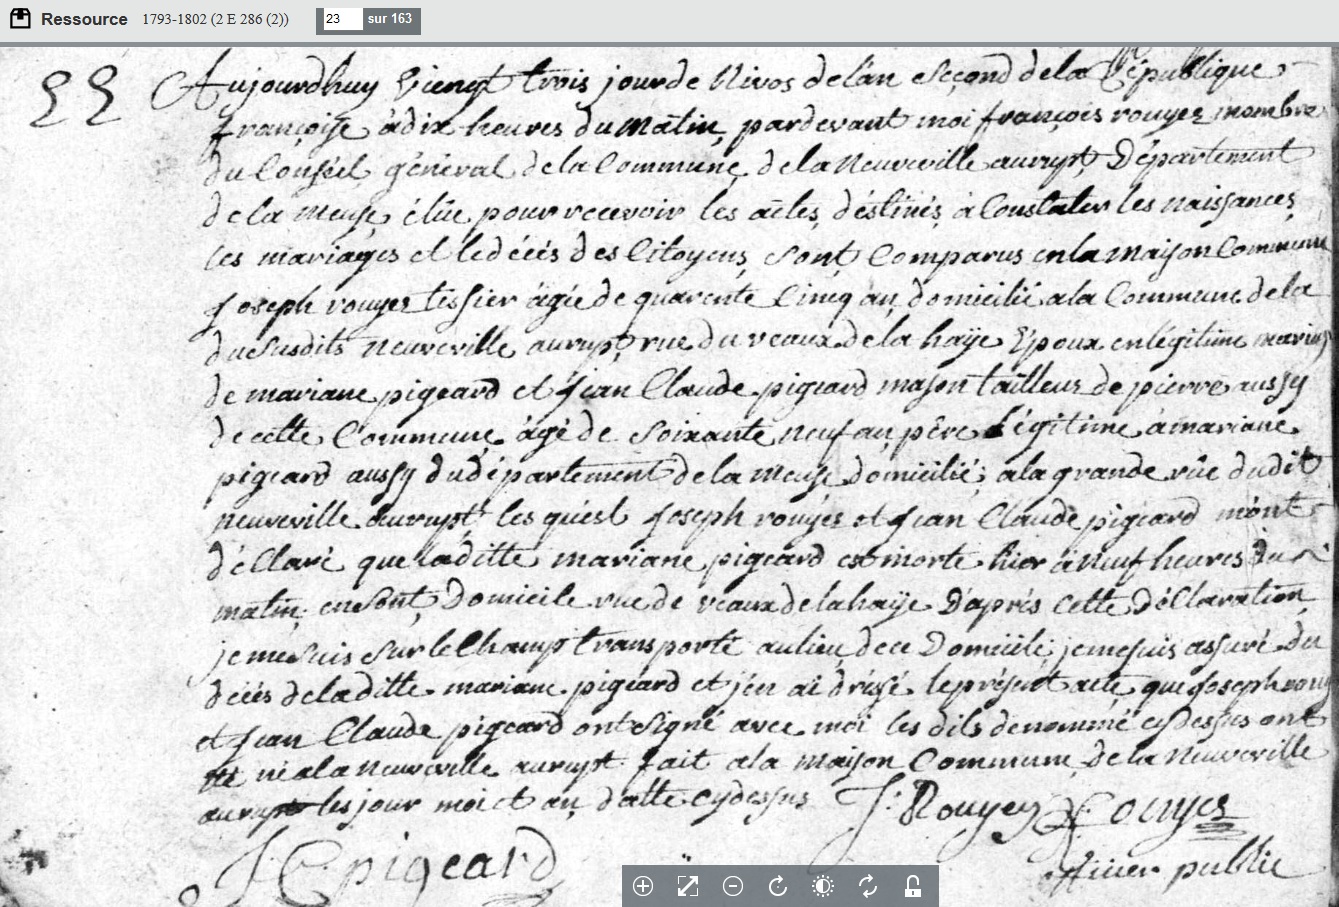 Ressource 1793-1802 (2 E 286 (2)) 23 sur 163
Aujourdhuy viengt trois jour de Nivos de lan second de la République
françoise à dix heures du matin pardevant moi françois rouyer membre
du Conseil géneral de la Commune de la Neuveville aurupt Département
de la meuse élûe pour recevoir les actes déstinés à Constater les naissances
les mariages et le décés des Citoyens sont Comparus en la maison Commune
joseph rouyer tessier âgée de quarente Cincq an domicilié a la Commune de la
du susdits Neuveville aurupt rue du veaux de la haÿe Epoux en légitime mariag
de mariane pigeard et jean Claude pigeard mason tailleur de pierre aussy
de cette Commune âgé de soixante neuf an père légitime à mariane
pigeard aussy du département de la meuse domicilié a la grande rûe dudit
neuveville aurupt les quiesl joseph rouyer et jean Claude pigeard m'ont
déClaré que laditte mariane pigeard est morte hier à neuf heures du
matin en sont Domicile rue de veaux de la haÿe D'après Cette déClaration
je me suis sur le Champ transporté au lieu de ce Domicile je me suis assuré du
décés de la ditte mariane pigeard et j'en ai drésé le présent acte que joseph rouy
et jean Claude pigeard ont signé avec moi les dits denommé cydessus ont
né a la Neuveville aurupt fait a la maison Commune de la Neuveville
aurupt les jour moi et an datte cydessus J: Rouyer F rouyer
J C pigeard officier public